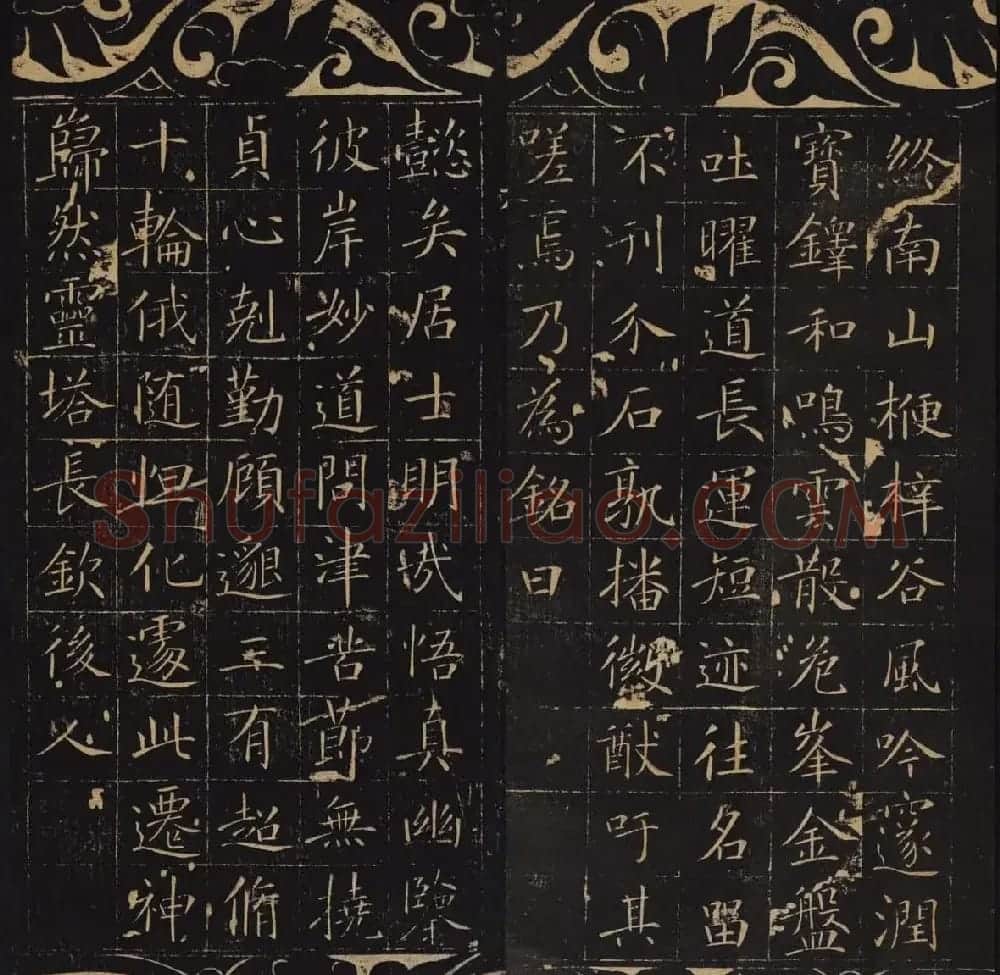 終南山楩梓谷風吟邃澗
寶鐸和鳴雲散危峯金盤
吐曜道長運短迹往名留
不刊介石孰播徽猷吁其
嗟焉乃為銘曰
懿矣居士明哉悟真幽鑒
彼岸妙道問津苦節無撓
貞心剋勤顧邈三有超脩
十輪俄随怛化遽此遷神
巋然靈塔長欽後人
Shufaziliao.COM